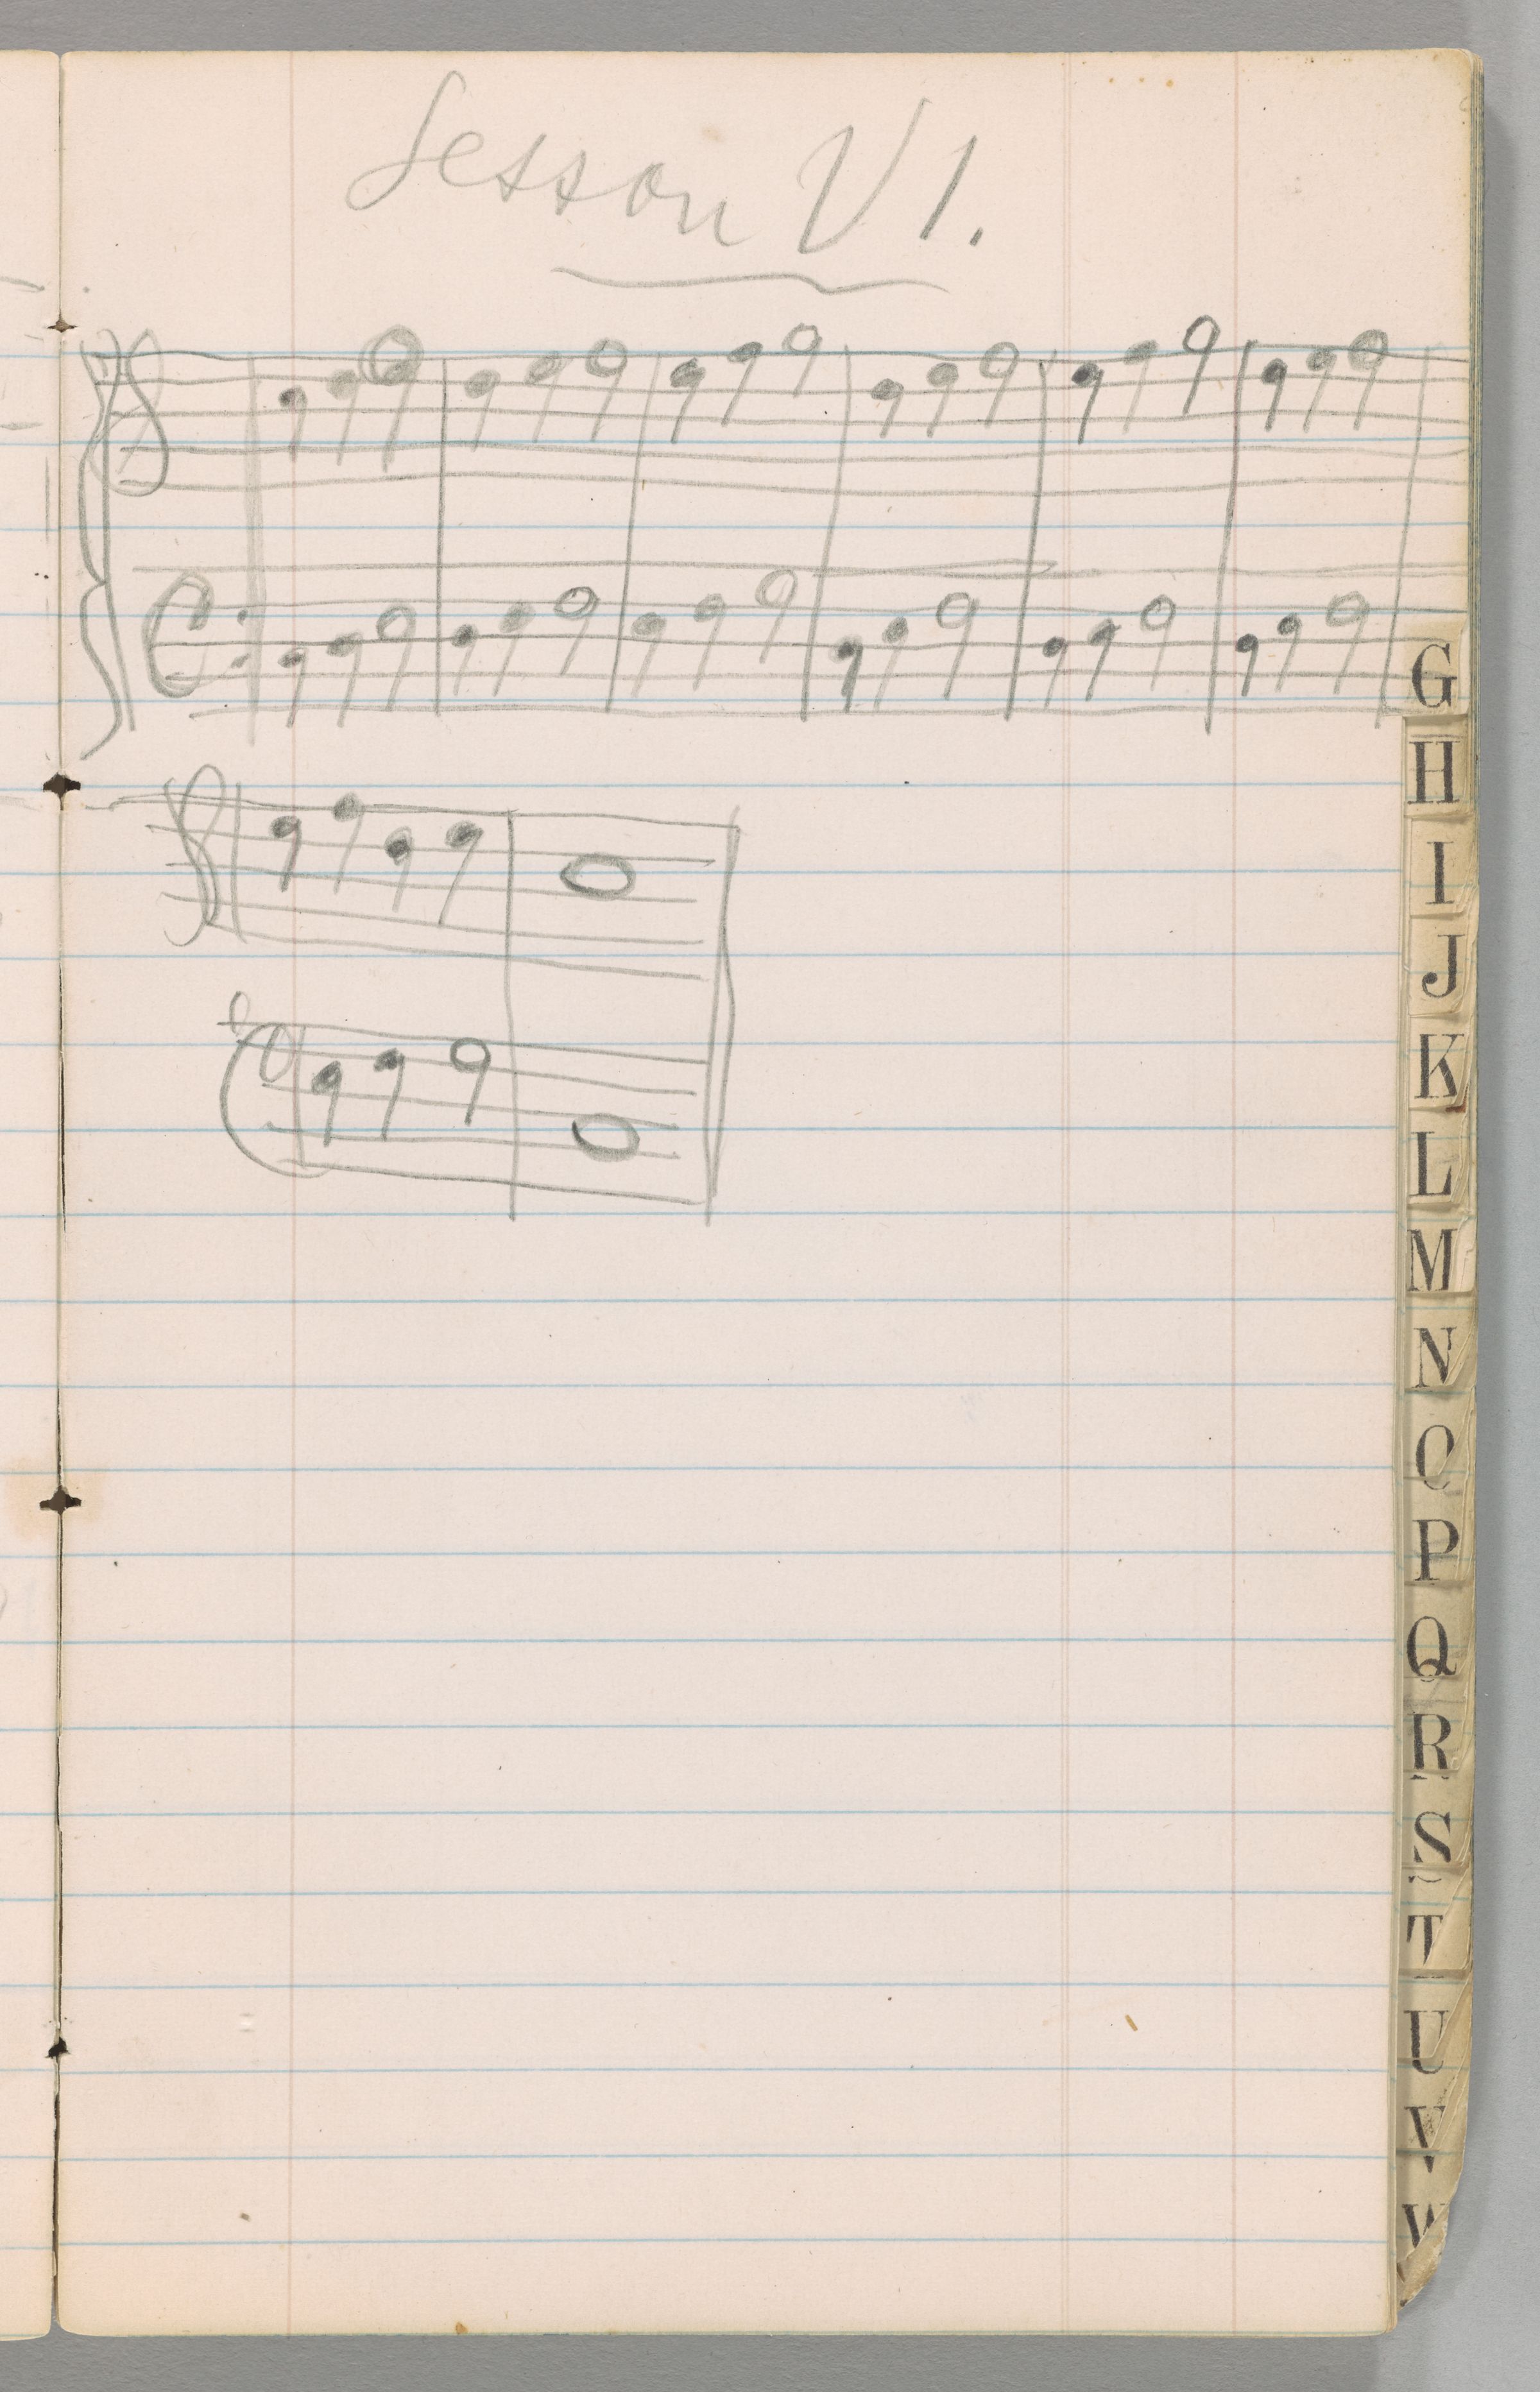 Lesson VI.
G
H
I
J
K
L
M
N
O
P
Q
R
S
T
U
V
W